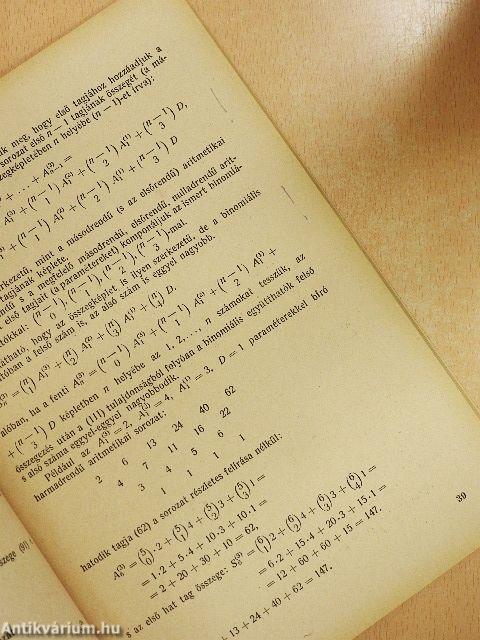 k meg, hogy első tagjához hozzáadjuk a
sorozat első n − 1 tagjának összegét (a má-
egképletében n helyébe (n − 1)-et írva):
+ . . . + A⁽²⁾ₙ₋₁ =
A₁⁽²⁾ + (n − 1 / 2) A₁⁽¹⁾ + (n − 1 / 3) D,
+ (n − 1 / 1) A₁⁽²⁾ + (n − 1 / 2) A₁⁽¹⁾ + (n − 1 / 3) D
erkezetű, mint a másodrendű (s az elsőrendű) aritmetikai
tagjának képlete.
endű s a megfelelő másodrendű, elsőrendű, nulladrendű arit-
első tagjait (a paramétereket) komponáljuk az ismert binomiá-
tókkal: (n − 1 / 0), (n − 1 / 1), (n − 1 / 2), (n − 1 / 3)-mal.
átható, hogy az összegképlet is ilyen szerkezetű, de a binomiális
tóban a felső szám is, az alsó szám is eggyel nagyobb.
= (n / 1) A₁⁽³⁾ + (n / 2) A₁⁽²⁾ + (n / 3) A₁⁽¹⁾ + (n / 4) D.
alóban, ha a fenti Aₙ⁽³⁾ = (n − 1 / 0) A₁⁽³⁾ + (n − 1 / 1) A₁⁽²⁾ + (n − 1 / 2) A₁⁽¹⁾ +
+ (n − 1 / 3) D képletben n helyébe az 1, 2, . . ., n számokat tesszük, az
összegezés után a (111) tulajdonságból folyóan a binomiális együtthatók felső
s alsó száma eggyel-eggyel nagyobbodik.
Például az A₁⁽³⁾ = 2, A₁⁽²⁾ = 4, A₁⁽¹⁾ = 3, D = 1 paraméterekkel bíró
harmadrendű aritmetikai sorozat:
2 6 13 24 40 62
4 7 11 16 22
3 4 5 6
1 1 1
hatodik tagja (62) a sorozat részletes felírása nélkül:
A₆⁽³⁾ = (5 / 0) · 2 + (5 / 1) 4 + (5 / 2) 3 + (5 / 3) 1 =
= 1 · 2 + 5 · 4 + 10 · 3 + 10 · 1 =
= 2 + 20 + 30 + 10 = 62,
s az első hat tag összege: S₆⁽³⁾ = (6 / 1) 2 + (6 / 2) 4 + (6 / 3) 3 + (6 / 4) 1 =
= 6 · 2 + 15 · 4 + 20 · 3 + 15 · 1 =
= 12 + 60 + 60 + 15 = 147.
+ 13 + 24 + 40 + 62 = 147.
39
Antikvárium.hu